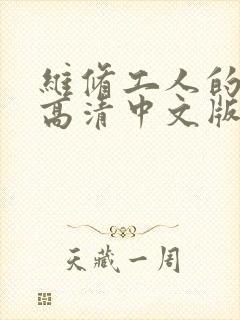 維脩工人的
高清中文版
天藏一周